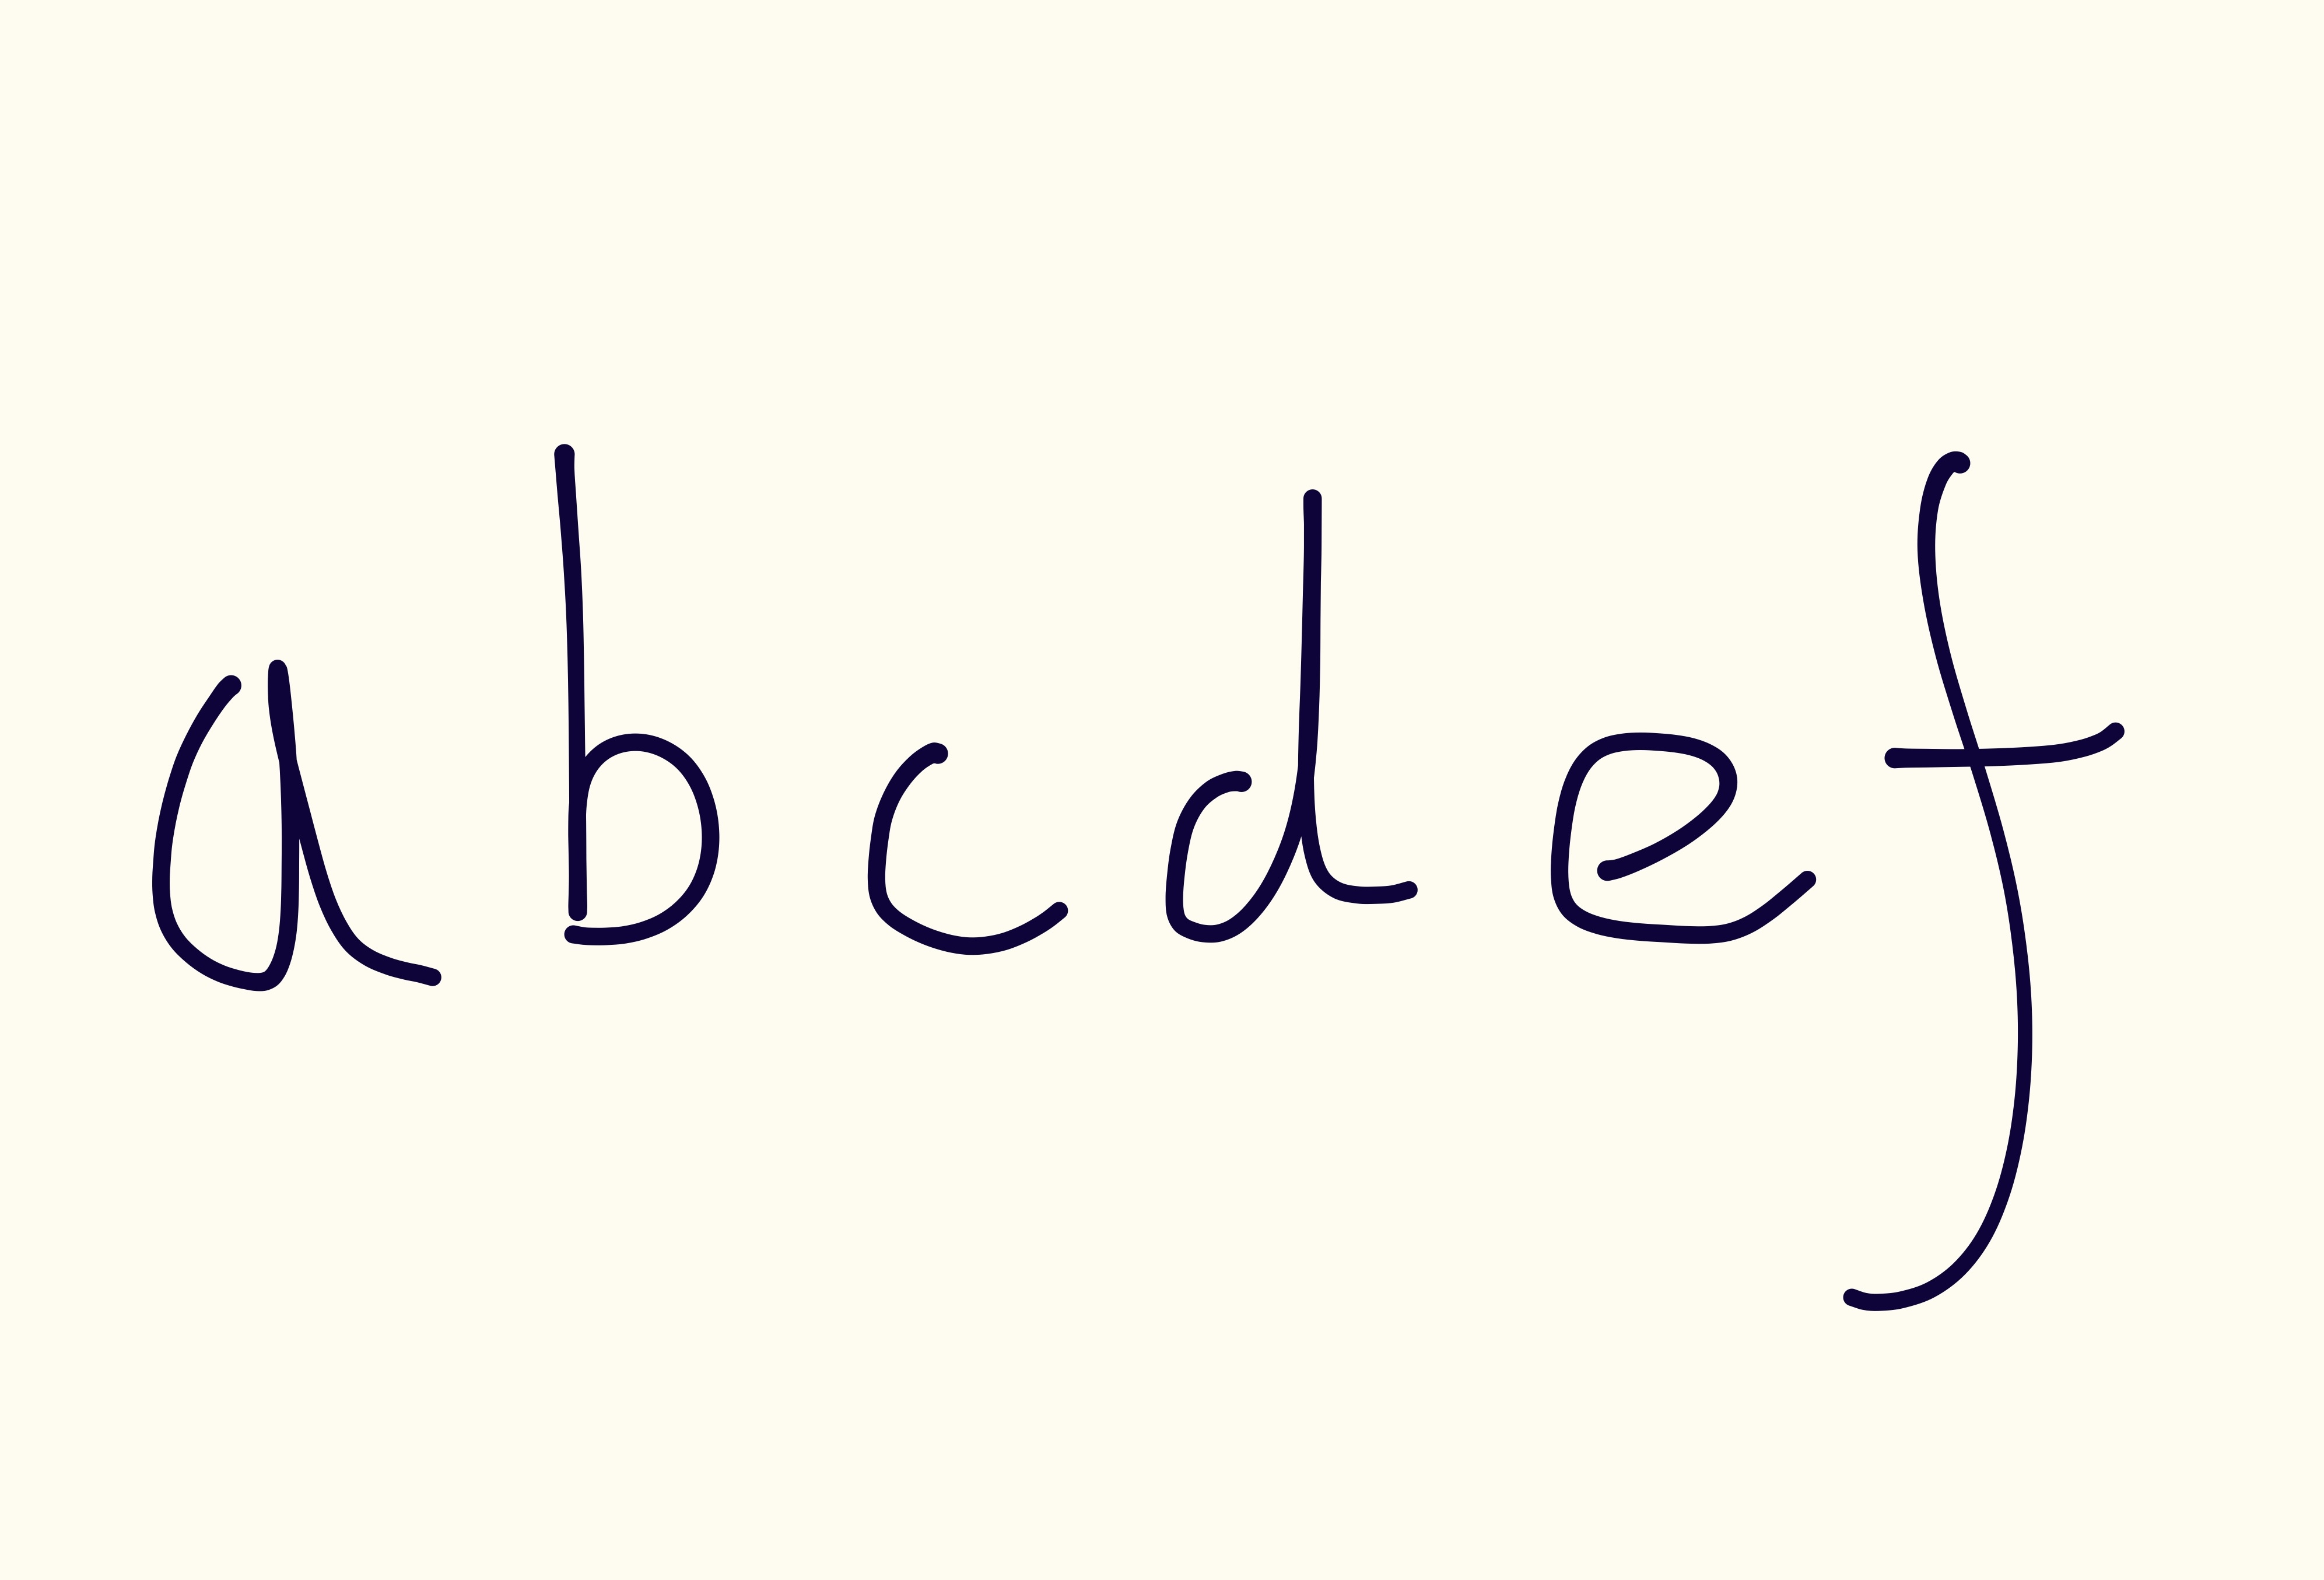 a b c d e f